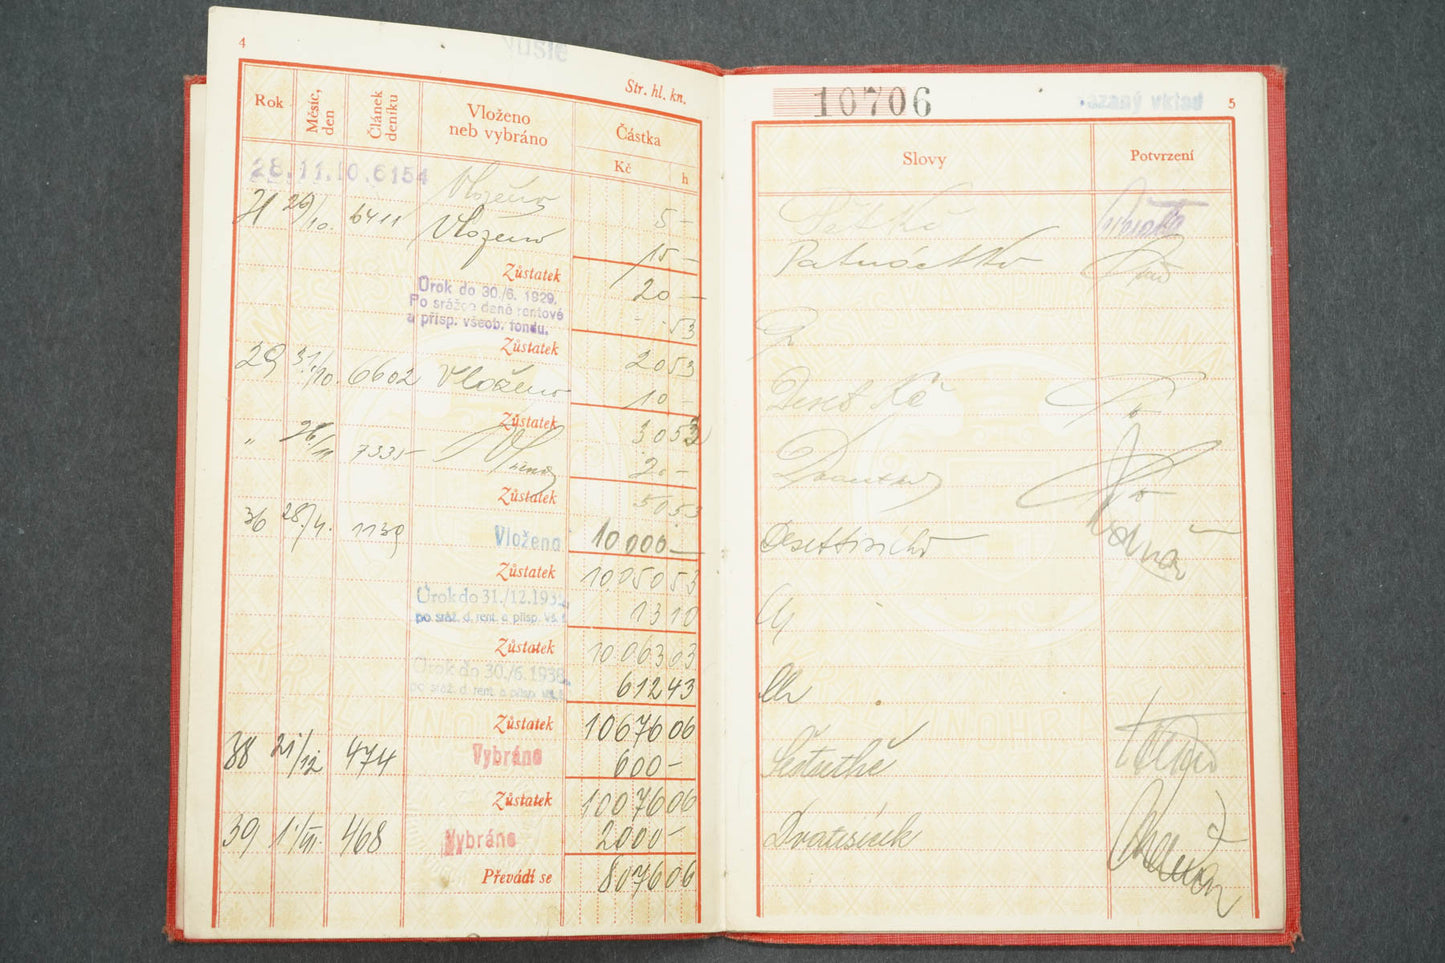 4
Str. hl. kn.
Rok Měsíc, den Článek deníku Vloženo neb vybráno Částka
Kč h
28.11.10.6154 Vloženo 5-
29/10. 6411 Vloženo 15-
Zůstatek 20-
Úrok do 30./6. 1929.
Po srážce daně rentové
a přísp. všeob. fondu. 53
Zůstatek 20 53
29 31./10. 6602 Vloženo 10-
Zůstatek 30 53
" 26/11 7335 20-
Zůstatek 50 53
36 28./4. 1139 Vloženo 10.000-
Zůstatek 10.050 53
Úrok do 31./12.
po sráž. d. rent. a přísp. vš. f. 13 10
Zůstatek 10.063 03
Úrok do 30./6. 1938.
po sráž. d. rent. a přísp. vš. f. 612 43
Zůstatek 10676 06
38 21/12 474 Vybráno 600-
Zůstatek 10076 06
39 1/III. 468 Vybráno 2000-
Převádí se 8076 06
10706
vklad 5
Slovy Potvrzení
Patnáctkč
Deset Kč
Desettisíckč
Šestsetkč
Dvatisíce